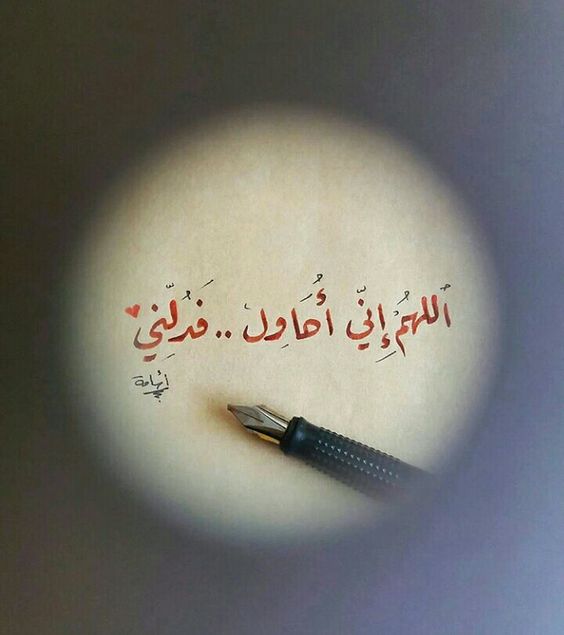 اللهُمَّ إِنّي أُحَاوِل .. فَدُلَّنِي